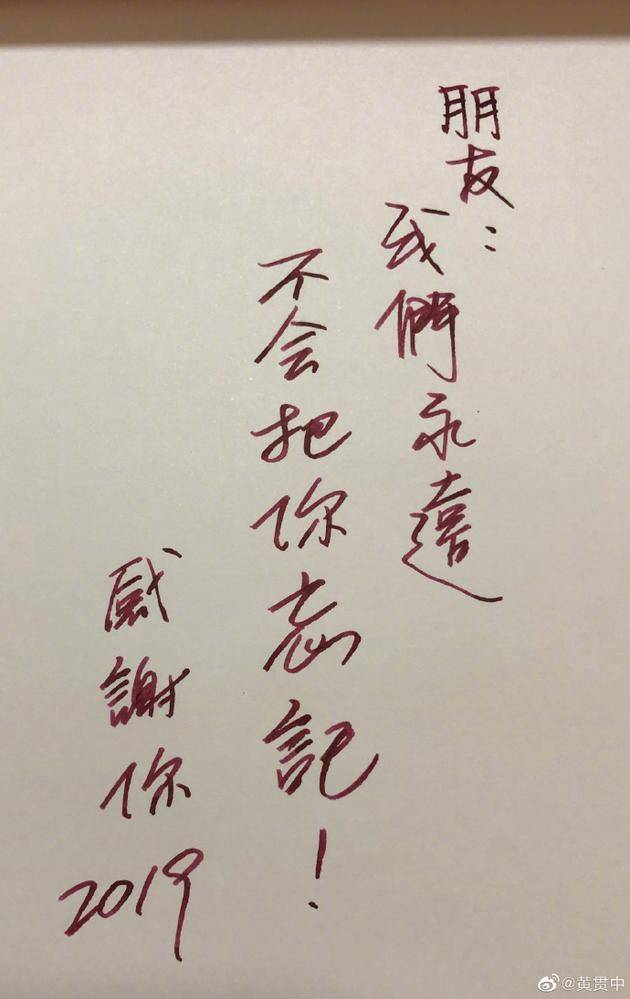 朋友：
我們永遠
不会把你忘記！
感謝你
2019
@黄贯中